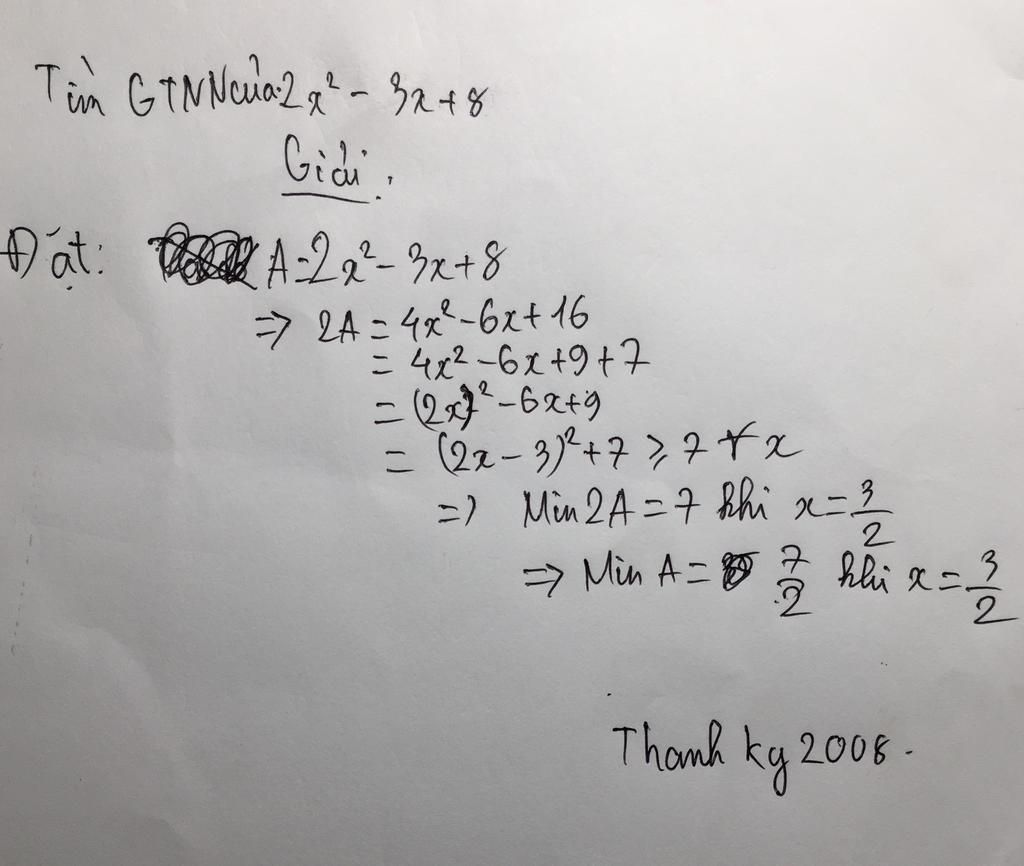 Tìm GTNN của: 2x² - 3x + 8
Giải:
Đặt: A = 2x² - 3x + 8
=> 2A = 4x² - 6x + 16
= 4x² - 6x + 9 + 7
= (2x)² - 6x + 9
= (2x - 3)² + 7 ⩾ 7 ∀ x
=> Min 2A = 7 khi x = 3/2
=> Min A = 7/2 khi x = 3/2
Thanh ky 2008.